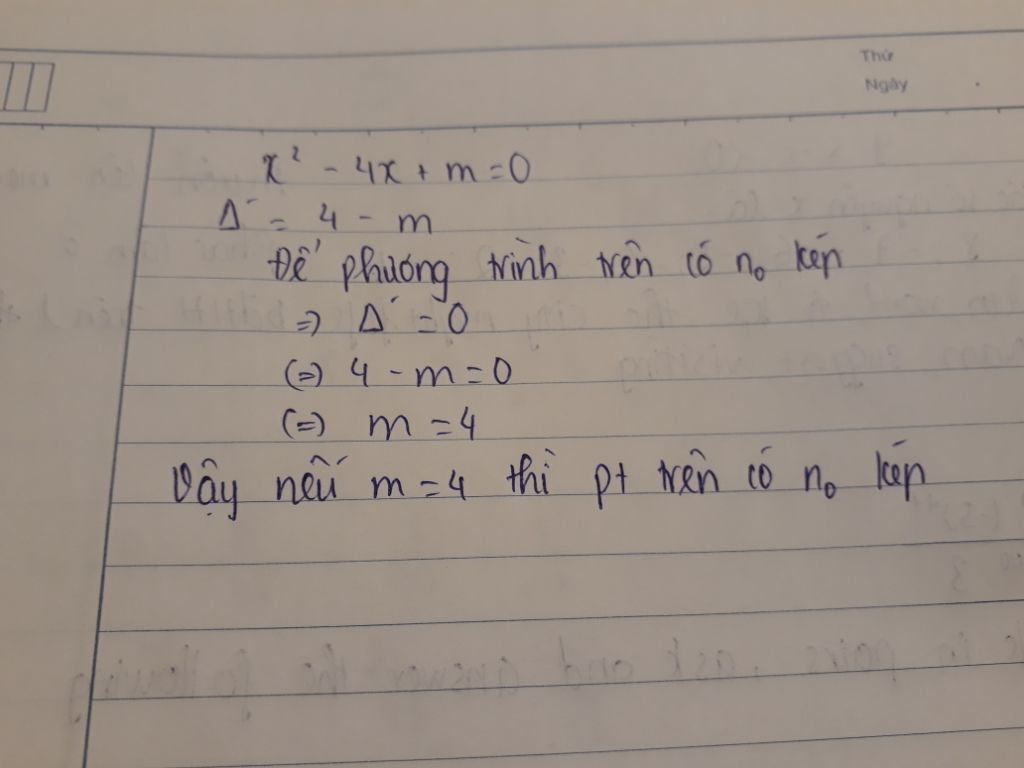 Thứ
Ngày
x² - 4x + m = 0
Δ' = 4 - m
Để phương trình trên có n₀ kép
=> Δ' = 0
(=) 4 - m = 0
(=) m = 4
Vậy nếu m = 4 thì pt trên có n₀ kép